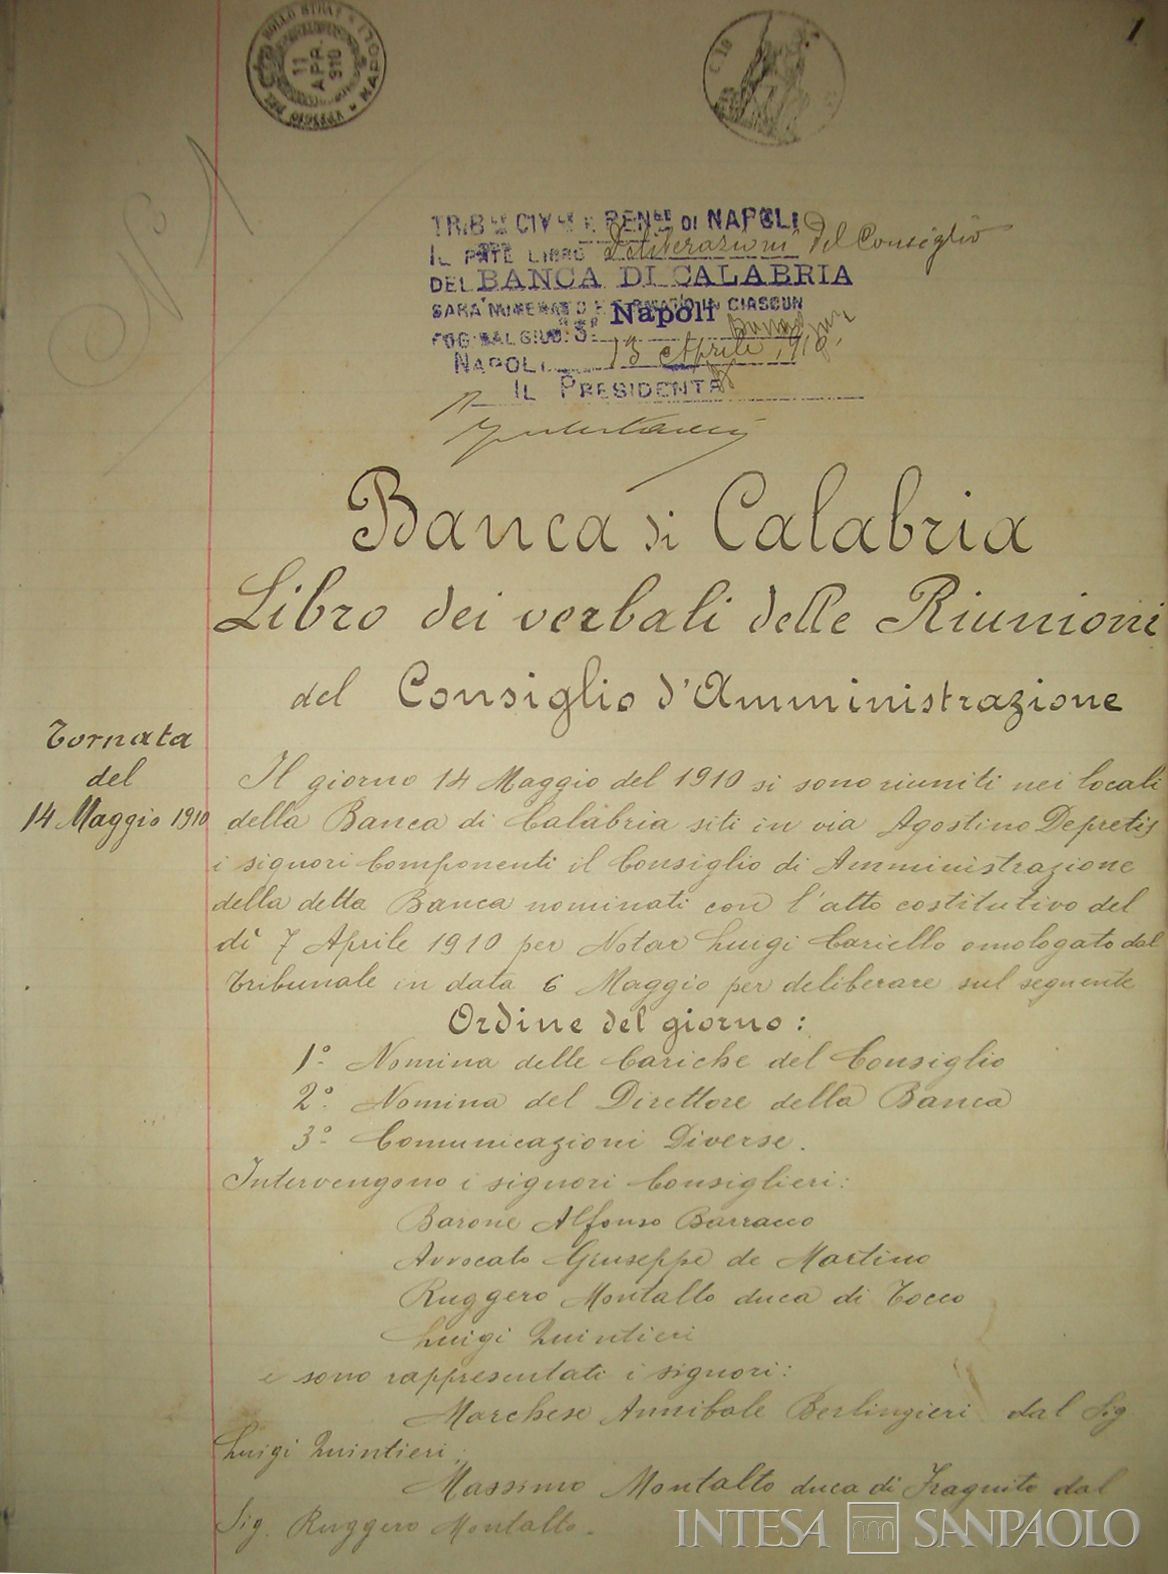 1
BOLLO STRAORD
NAPOLI
11
APR.
910
C. 10
N° 1
TRIB.LE CIV.LE E PEN.LE DI NAPOLI
IL PNTE LIBRO Deliberazioni del Consiglio
DEL BANCA DI CALABRIA
SARA' NUMERATO E FIRMATO IN CIASCUN
FOG. DAL GIUD. Napoli
NAPOLI 13 Aprile 1910
IL PRESIDENTE
Banca di Calabria
Libro dei verbali delle Riunioni
del Consiglio d'Amministrazione
Tornata
del
14 Maggio 1910
Il giorno 14 Maggio del 1910 si sono riuniti nei locali
della Banca di Calabria siti in via Agostino Depretis
i signori Componenti il Consiglio di Amministrazione
della detta Banca nominati con l'atto costitutivo del
dì 7 Aprile 1910 per Notar Luigi Cariello omologato dal
Tribunale in data 6 Maggio per deliberare sul seguente
Ordine del giorno:
1° Nomina delle Cariche del Consiglio
2° Nomina del Direttore della Banca
3° Comunicazioni Diverse.
Intervengono i signori Consiglieri:
Barone Alfonso Barracco
Avvocato Giuseppe de Martino
Ruggero Montalto duca di Tocco
Luigi Quintieri
e sono rappresentati i signori:
Marchese Annibale Berlingieri dal Sig
Luigi Quintieri;
Massimo Montalto duca di Fragnito dal
Sig. Ruggero Montalto.
INTESA SANPAOLO